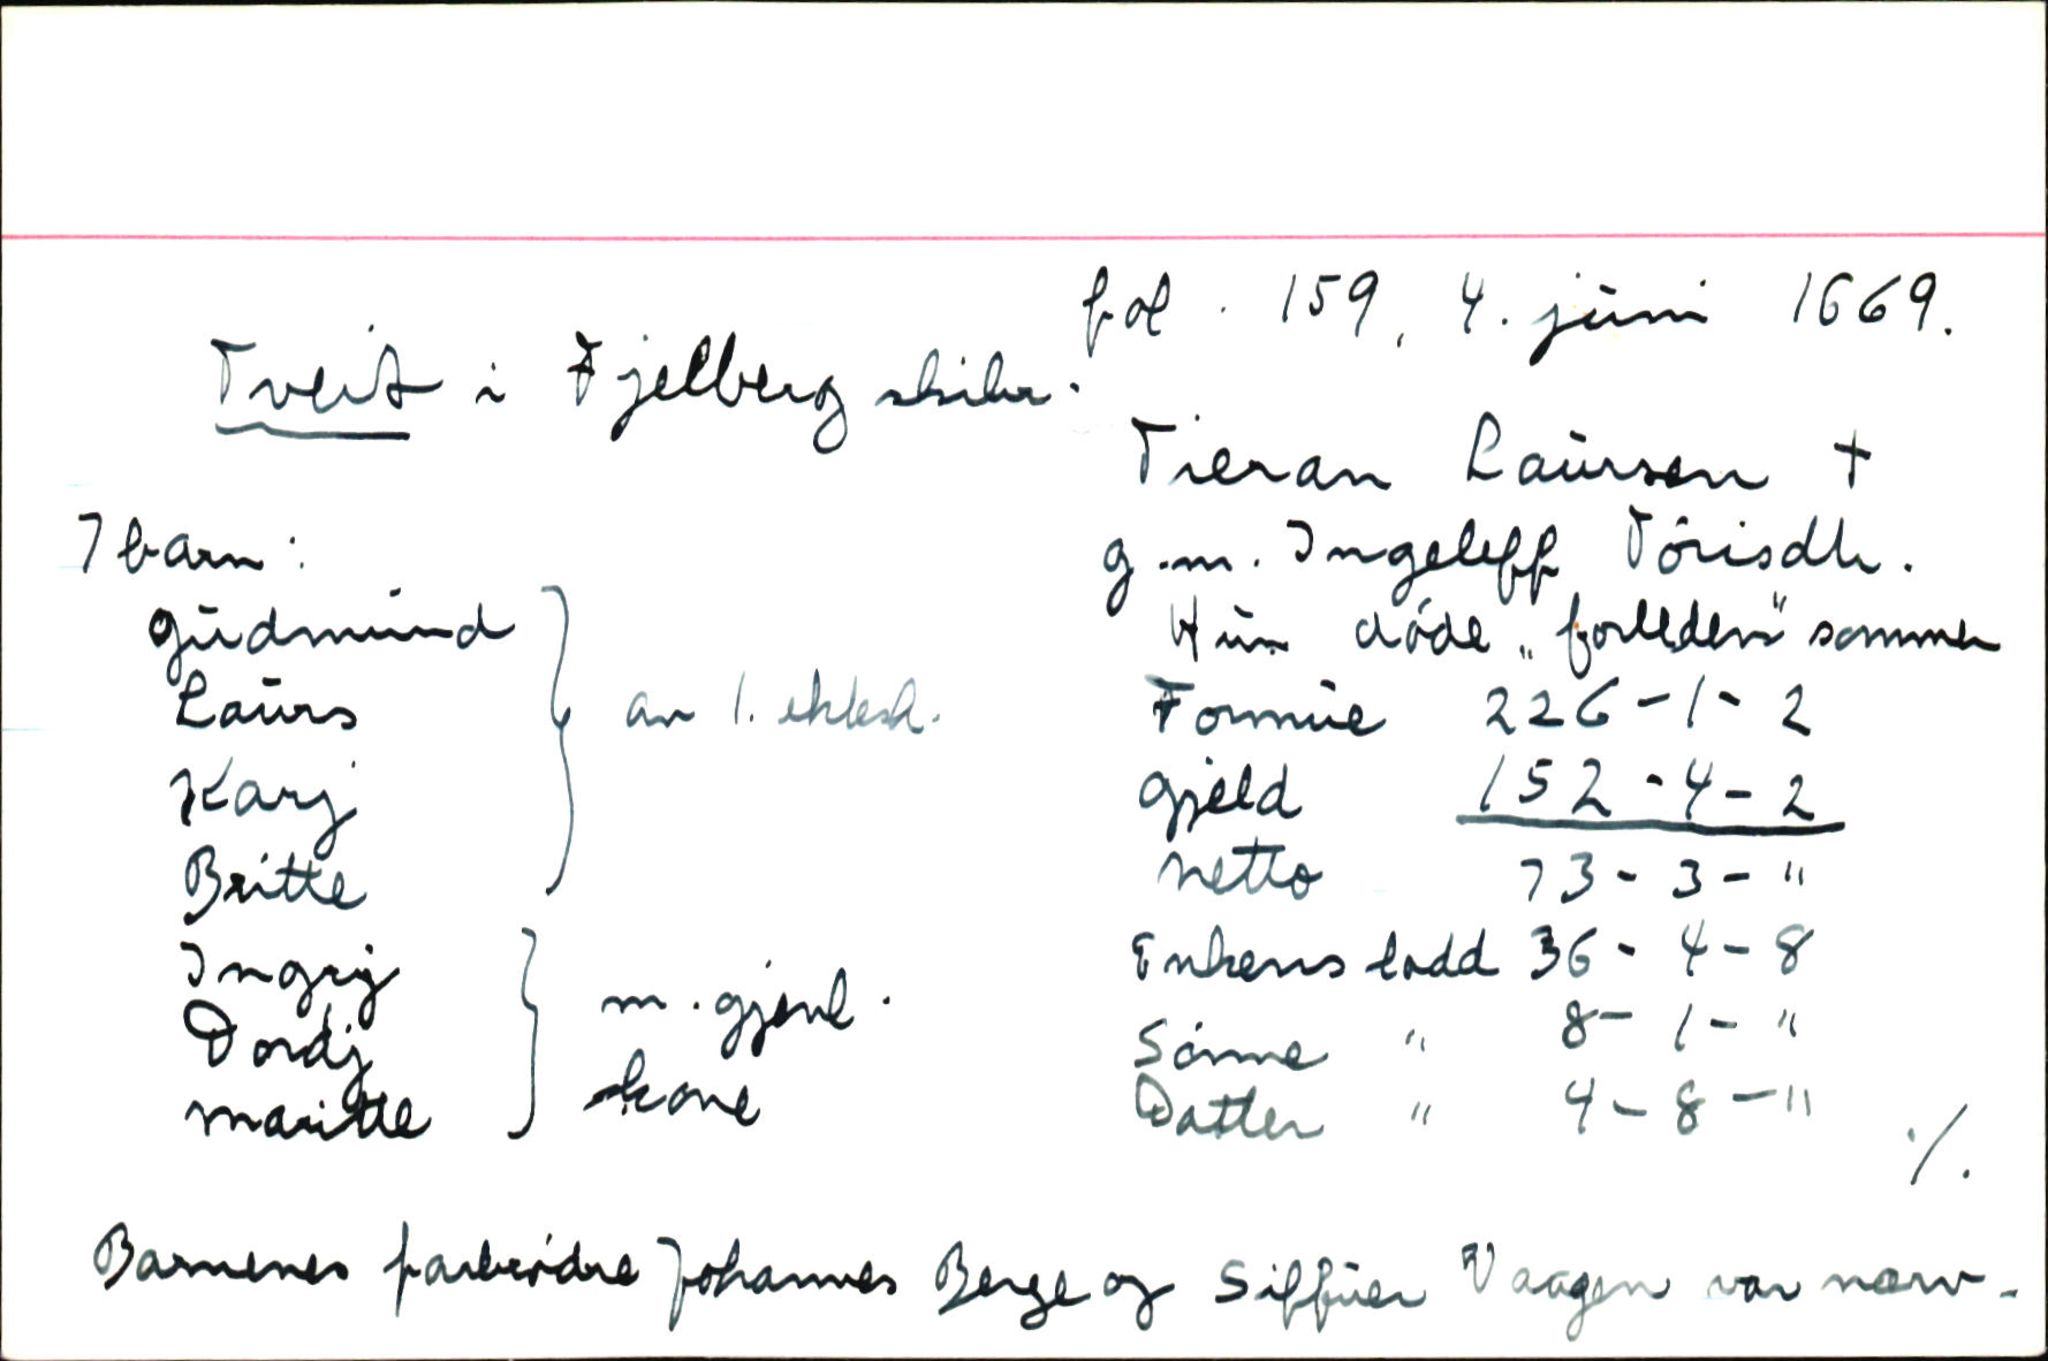 fol. 159, 4. juni 1669.
Tveit i Fjelberg skibr.
Tieran Laursen +
g.m. Ingeleff Tórisdtr.
Hun dóde „forleden" sommer
7 barn:
Gudmund
Laurs
Karj
Britte
av 1. ektesk.
Ingrij
Dordj
Maritte
m. gjenl.
kone
Formue 226-1-2
Gjeld 152-4-2
Netto 73-3-"
Enkens lodd 36-4-8
Sónne " 8-1-"
Datter " 4-8-"
./.
Barnenes farbródre Johannes Berge og Siffuer Vaagen var nærv.